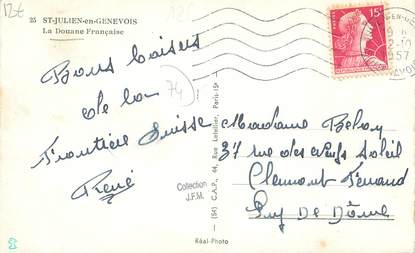 12€
25 ST-JULIEN-en-GENEVOIS
La Douane Française
15F
1957
Bons baisers
de la
74
Frontière Suisse
René
Collection
J.F.M.
(54) C.A.P., 44, Rue Letellier, Paris-15e
Madame Beloy
37 rue des neufs soleil
Clermont Ferrand
Puy De Dôme
Réal-Photo